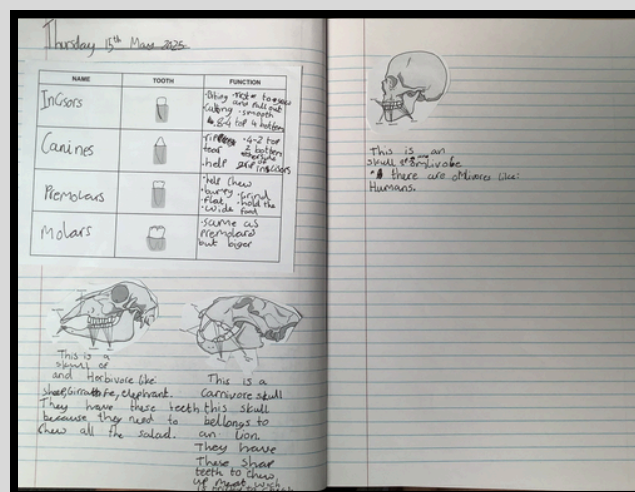 Thursday 15th May 2025
NAME TOOTH FUNCTION
Incisors
• Biting • first to grow
and fall out
Cutting • smooth
• 8-4 top 4 bottom
Canines
• 4-2 top
tear 2 bottom
• help grip
incisors
Premolars
• help chew
• bumpy • Grind
• flat • hold the
• wide food
Molars
• same as
premolars
but biger
This is a
skull of
and Herbivore like:
elephant.
They have these teeth
because they need to
chew all the salad.
This is a
Carnivore skull
this skull
bellongs to
an lion.
They have
These shap
teeth to chew
up meat wich
This is an
skull
there are like:
Humans.